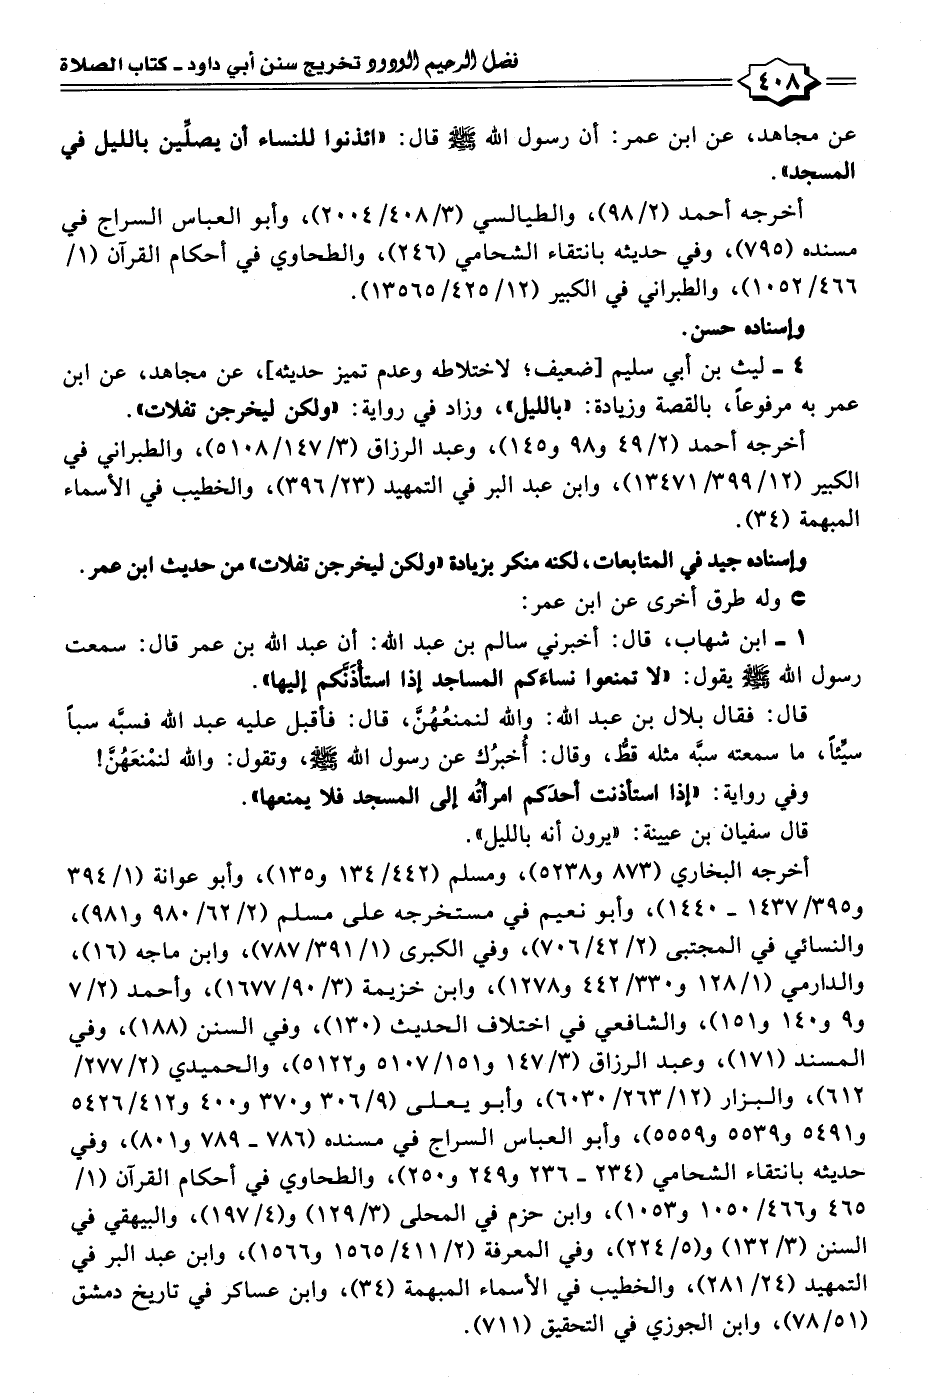 فضل الرحيم الودود تخريج سنن أبي داود - كتاب الصلاة
٤٠٨
عن مجاهد، عن ابن عمر: أن رسول الله ﷺ قال: «ائذنوا للنساء أن يصلِّين بالليل في
المسجد».
أخرجه أحمد (٩٨/٢)، والطيالسي (٢٠٠٤/٤٠٨/٣)، وأبو العباس السراج في
مسنده (٧٩٥)، وفي حديثه بانتقاء الشحامي (٢٤٦)، والطحاوي في أحكام القرآن (١/
١٠٥٢/٤٦٦)، والطبراني في الكبير (١٣٥٦٥/٤٢٥/١٢).
وإسناده حسن.
٤ - ليث بن أبي سليم [ضعيف؛ لاختلاطه وعدم تميز حديثه]، عن مجاهد، عن ابن
عمر به مرفوعاً، بالقصة وزيادة: «بالليل»، وزاد في رواية: «ولكن ليخرجن تفلات».
أخرجه أحمد (٤٩/٢ و٩٨ و١٤٥)، وعبد الرزاق (٥١٠٨/١٤٧/٣)، والطبراني في
الكبير (١٣٤٧١/٣٩٩/١٢)، وابن عبد البر في التمهيد (٣٩٦/٢٣)، والخطيب في الأسماء
المبهمة (٣٤).
وإسناده جيد في المتابعات، لكنه منكر بزيادة «ولكن ليخرجن تفلات» من حديث ابن عمر.
وله طرق أخرى عن ابن عمر:
١ - ابن شهاب، قال: أخبرني سالم بن عبد الله: أن عبد الله بن عمر قال: سمعت
رسول الله ﷺ يقول: «لا تمنعوا نساءَكم المساجد إذا استأذَنَّكم إليها».
قال: فقال بلال بن عبد الله: والله لنمنعُهُنَّ، قال: فأقبل عليه عبد الله فسبَّه سباً
سيِّئاً، ما سمعته سبَّه مثله قطُّ، وقال: أُخبرُك عن رسول الله ﷺ، وتقول: والله لنمْنعَهُنَّ!
وفي رواية: «إذا استأذنت أحدَكم امرأتُه إلى المسجد فلا يمنعها».
قال سفيان بن عيينة: «يرون أنه بالليل».
أخرجه البخاري (٨٧٣ و٥٢٣٨)، ومسلم (١٣٤/٤٤٢ و١٣٥)، وأبو عوانة (٣٩٤/١
و١٤٣٧/٣٩٥ - ١٤٤٠)، وأبو نعيم في مستخرجه على مسلم (٩٨٠/٦٢/٢ و٩٨١)،
والنسائي في المجتبى (٧٠٦/٤٢/٢)، وفي الكبرى (٧٨٧/٣٩١/١)، وابن ماجه (١٦)،
والدارمي (١٢٨/١ و٤٤٢/٣٣٠ و١٢٧٨)، وابن خزيمة (١٦٧٧/٩٠/٣)، وأحمد (٧/٢
و٩ و١٤٠ و١٥١)، والشافعي في اختلاف الحديث (١٣٠)، وفي السنن (١٨٨)، وفي
المسند (١٧١)، وعبد الرزاق (١٤٧/٣ و٥١٠٧/١٥١ و٥١٢٢)، والحميدي (٢٧٧/٢/
٦١٢)، والبزار (٦٠٣٠/٢٦٣/١٢)، وأبو يعلى (٣٠٦/٩ و٣٧٠ و٤٠٠ و٥٤٢٦/٤١٢
و٥٤٩١ و٥٥٣٩ و٥٥٥٩)، وأبو العباس السراج في مسنده (٧٨٦ - ٧٨٩ و٨٠١)، وفي
حديثه بانتقاء الشحامي (٢٣٤ - ٢٣٦ و٢٤٩ و٢٥٠)، والطحاوي في أحكام القرآن (١/
٤٦٥ و١٠٥٠/٤٦٦ و١٠٥٣)، وابن حزم في المحلى (١٢٩/٣) و(١٩٧/٤)، والبيهقي في
السنن (١٣٢/٣) و(٢٢٤/٥)، وفي المعرفة (١٥٦٥/٤١١/٢ و١٥٦٦)، وابن عبد البر في
التمهيد (٢٨١/٢٤)، والخطيب في الأسماء المبهمة (٣٤)، وابن عساكر في تاريخ دمشق
(٧٨/٥١)، وابن الجوزي في التحقيق (٧١١).